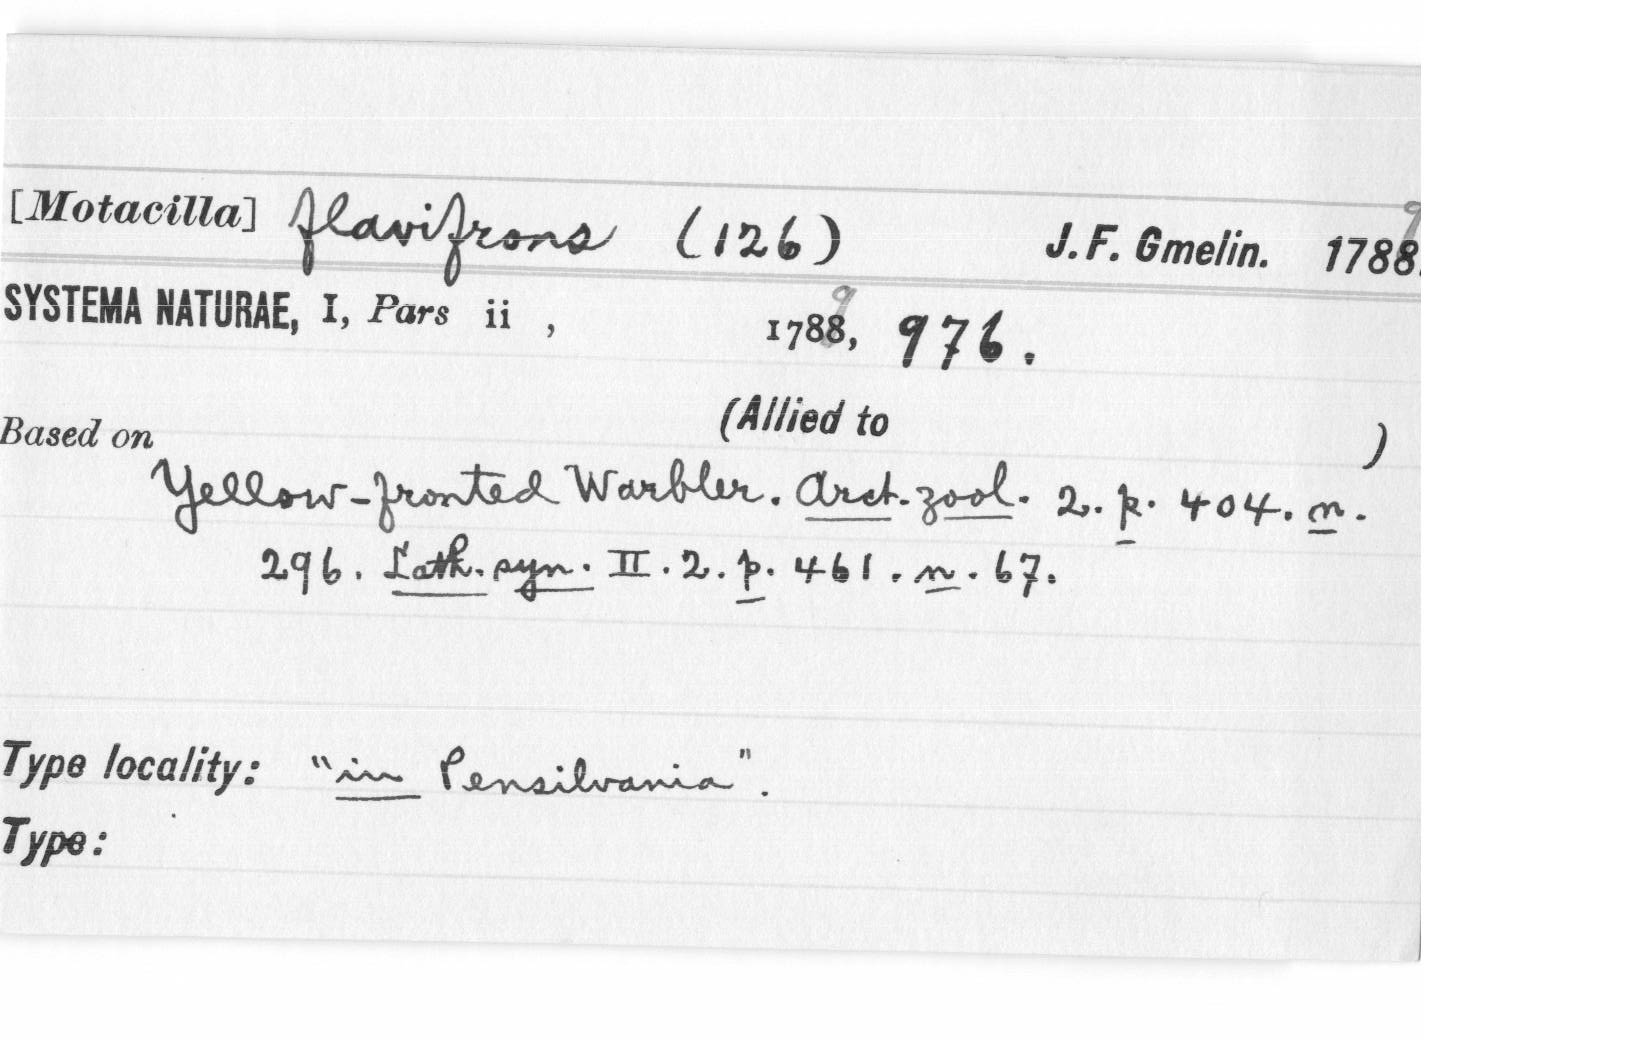 [Motacilla] flavifrons (126) J. F. Gmelin. 1788. 9
SYSTEMA NATURAE, I, Pars ii , 1788, 9 976.
(Allied to )
Based on
Yellow-fronted Warbler. Arct. zool. 2. p. 404. n.
296. Lath. syn. II. 2. p. 461. n. 67.
Type locality: "in Pensilvania".
Type: